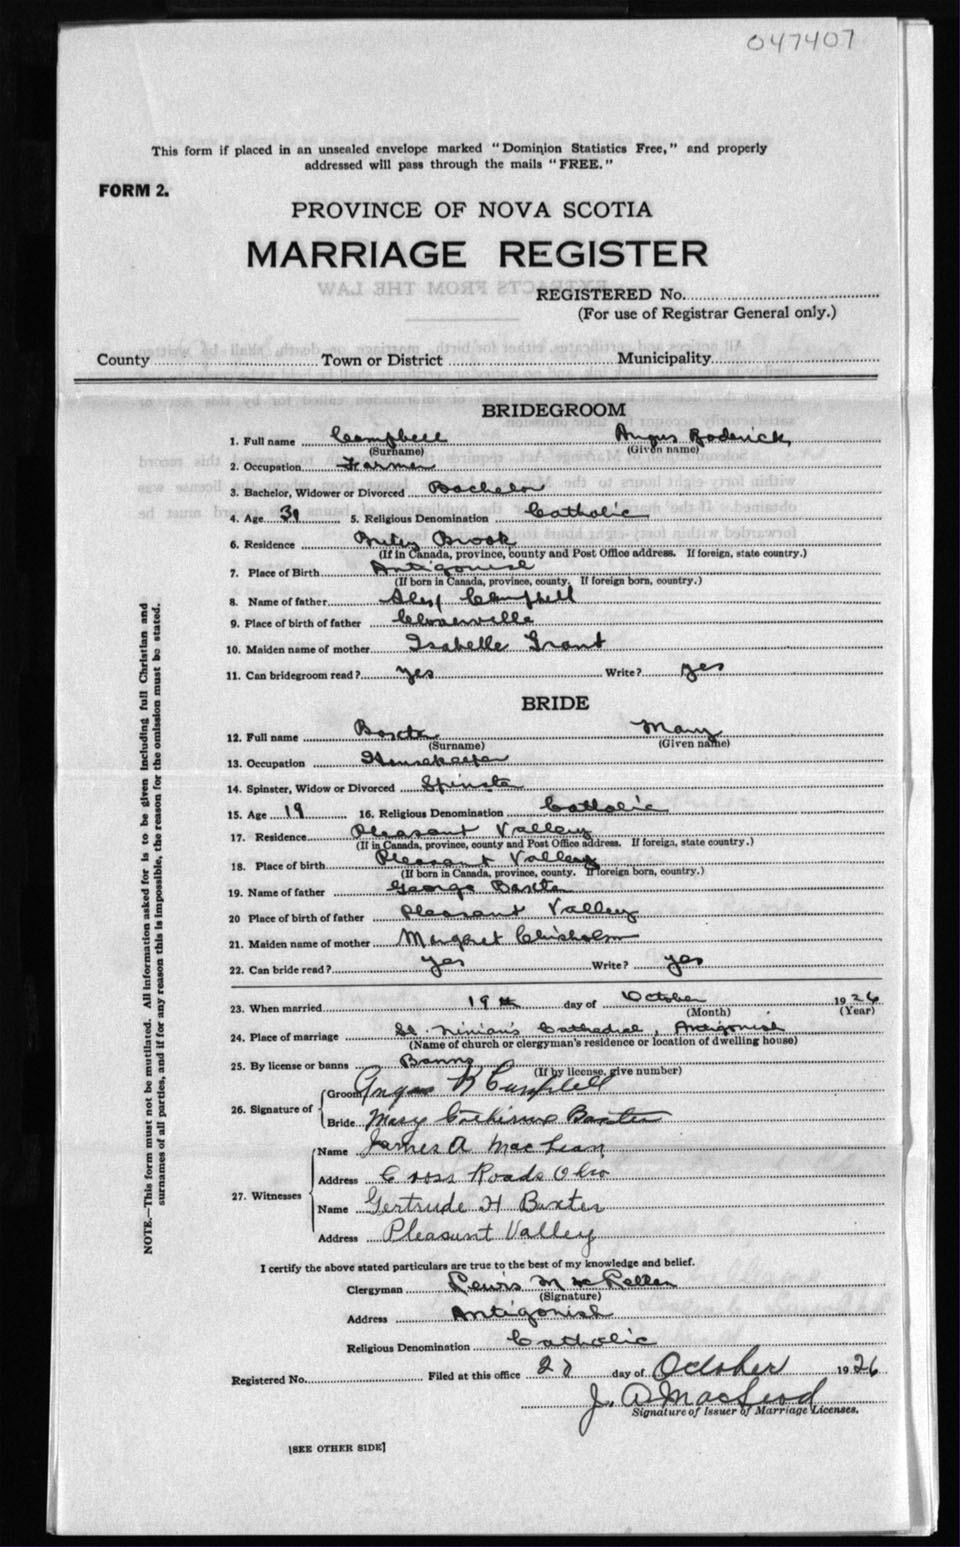 047407
This form if placed in an unsealed envelope marked "Dominion Statistics Free," and properly
addressed will pass through the mails "FREE."
FORM 2.
PROVINCE OF NOVA SCOTIA
MARRIAGE REGISTER
REGISTERED No.
(For use of Registrar General only.)
County Town or District Municipality
BRIDEGROOM
1. Full name Campbell Angus Roderick
(Surname) (Given name)
2. Occupation Farmer
3. Bachelor, Widower or Divorced Bachelor
4. Age 31 5. Religious Denomination Catholic
6. Residence Brook
(If in Canada, province, county and Post Office address. If foreign, state country.)
7. Place of Birth Antigonish
(If born in Canada, province, county. If foreign born, country.)
8. Name of father Alex Campbell
9. Place of birth of father Cloverville
10. Maiden name of mother Isabelle Grant
11. Can bridegroom read? yes Write? yes
BRIDE
12. Full name Baxter Mary
(Surname) (Given name)
13. Occupation Housekeeper
14. Spinster, Widow or Divorced Spinster
15. Age 19 16. Religious Denomination Catholic
17. Residence Pleasant Valley
(If in Canada, province, county and Post Office address. If foreign, state country.)
18. Place of birth Pleasant Valley
(If born in Canada, province, county. If foreign born, country.)
19. Name of father George Baxter
20 Place of birth of father Pleasant Valley
21. Maiden name of mother Margaret Chisholm
22. Can bride read? yes Write? yes
23. When married 19th day of October 1926
(Month) (Year)
24. Place of marriage St. Ninian's Cathedral, Antigonish
(Name of church or clergyman's residence or location of dwelling house)
25. By license or banns Banns
(If by license, give number)
26. Signature of
Groom Angus R Campbell
Bride Mary Catherine Baxter
27. Witnesses
Name James A MacLean
Address Cross Roads Ohio
Name Gertrude H Baxter
Address Pleasant Valley
I certify the above stated particulars are true to the best of my knowledge and belief.
Clergyman Lewis M McLellan
(Signature)
Address Antigonish
Religious Denomination Catholic
Registered No. Filed at this office day of October 1926
J. A. MacLeod
Signature of Issuer of Marriage Licenses.
[SEE OTHER SIDE]
NOTE.—This form must not be mutilated. All information asked for is to be given including full Christian and
surnames of all parties, and if for any reason this is impossible, the reason for the omission must be stated.